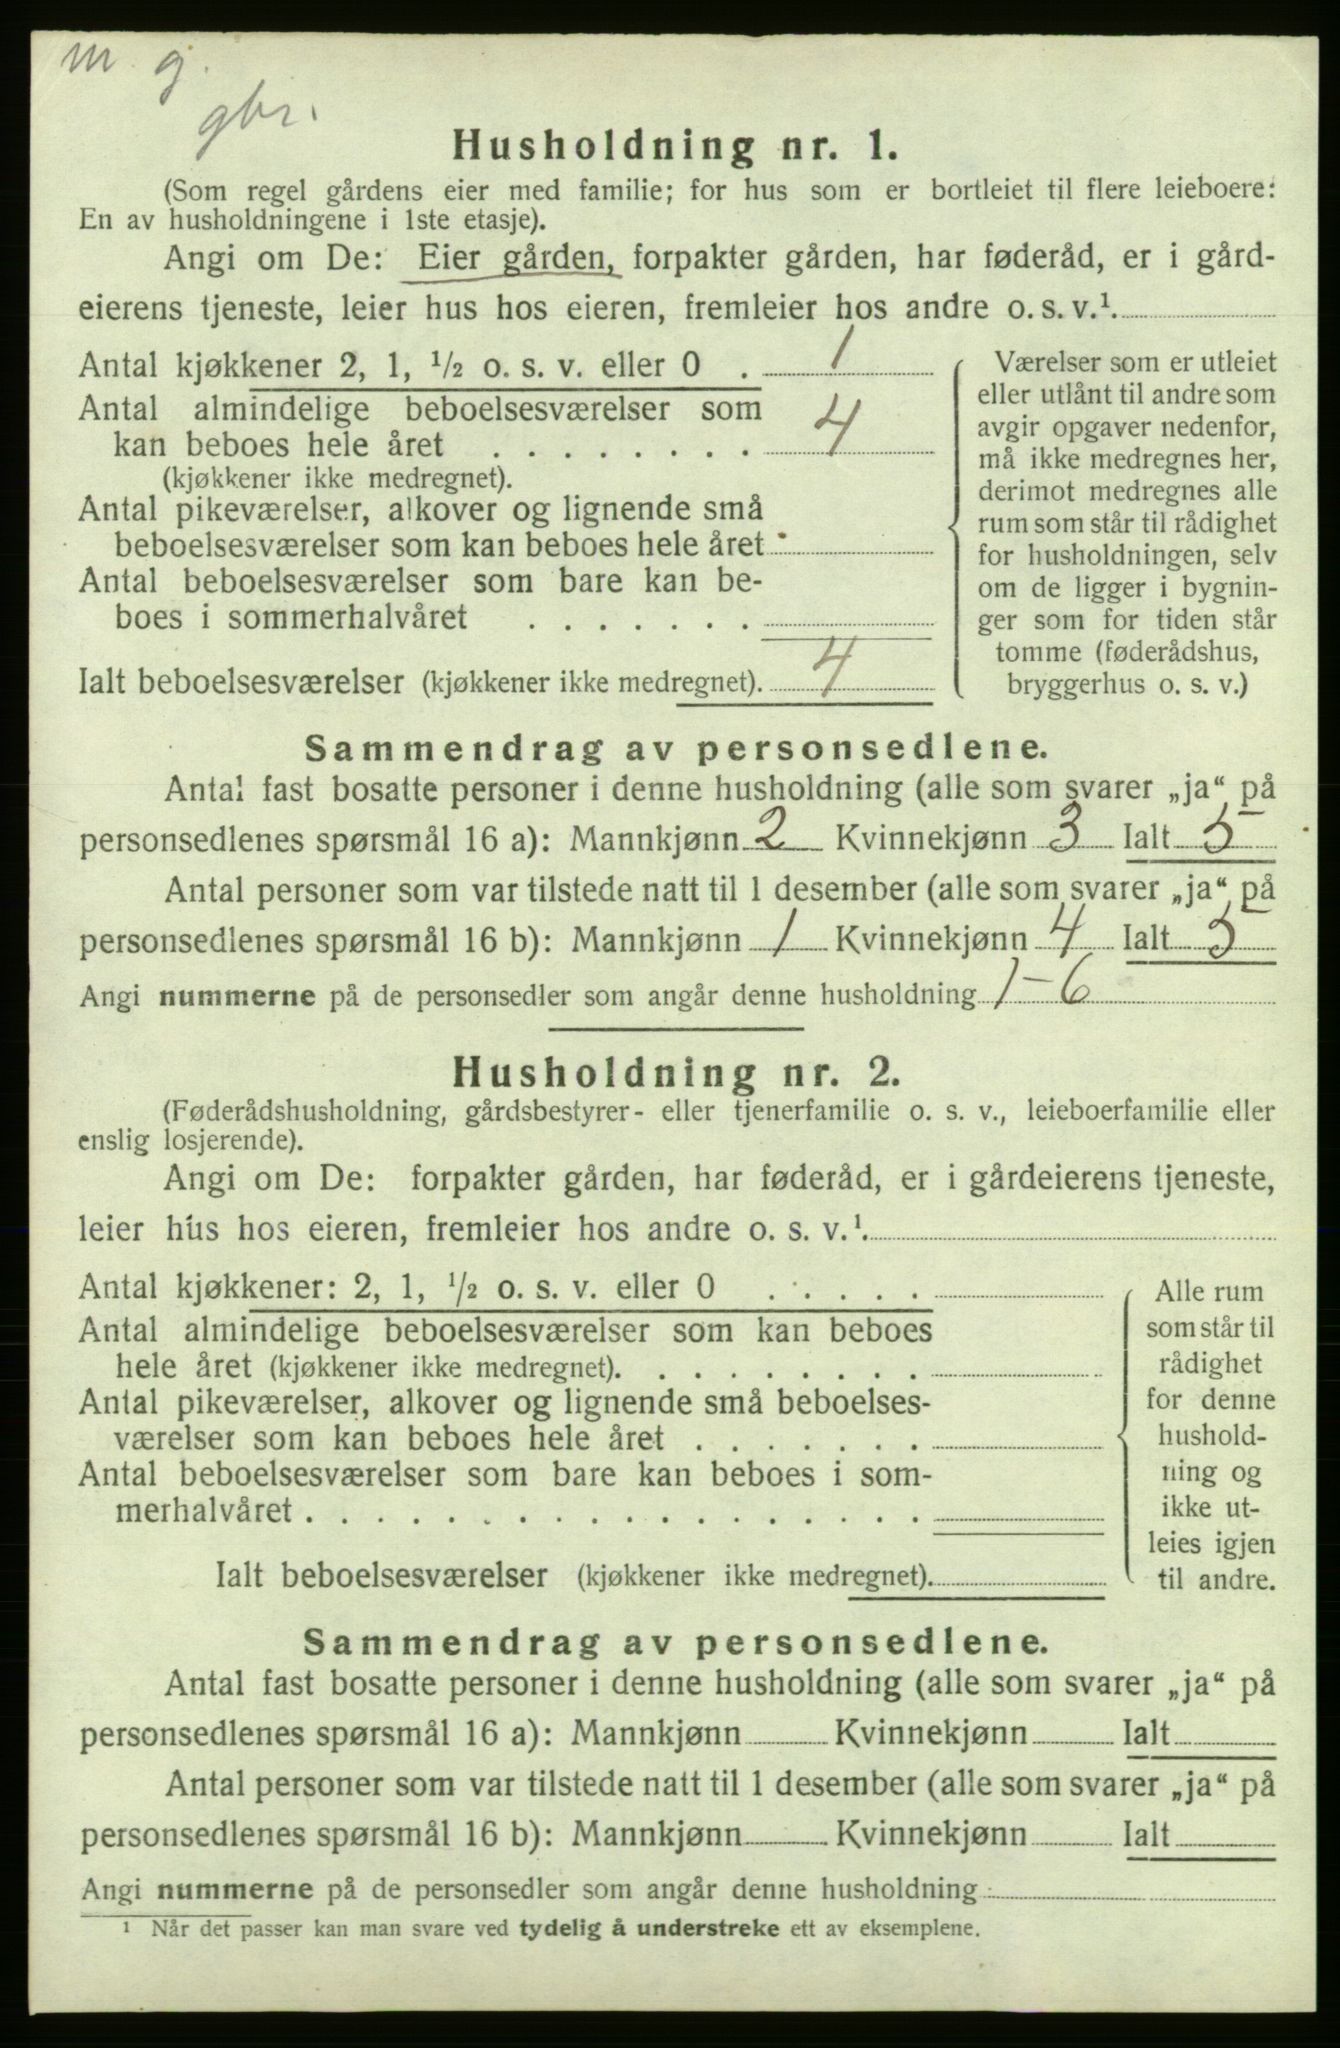 m. g.
gbr.
Husholdning nr. 1.
(Som regel gårdens eier med familie; for hus som er bortleiet til flere leieboere:
En av husholdningene i 1ste etasje).
Angi om De: Eier gården, forpakter gården, har føderåd, er i gård-
eierens tjeneste, leier hus hos eieren, fremleier hos andre o. s. v.¹.
Antal kjøkkener 2, 1, ½ o. s. v. eller 0 . 1
Antal almindelige beboelsesværelser som
kan beboes hele året . . . . . . . . 4
(kjøkkener ikke medregnet).
Antal pikeværelser, alkover og lignende små
beboelsesværelser som kan beboes hele året
Antal beboelsesværelser som bare kan be-
boes i sommerhalvåret . . . . . . .
Ialt beboelsesværelser (kjøkkener ikke medregnet). 4
Værelser som er utleiet
eller utlånt til andre som
avgir opgaver nedenfor,
må ikke medregnes her,
derimot medregnes alle
rum som står til rådighet
for husholdningen, selv
om de ligger i bygnin-
ger som for tiden står
tomme (føderådshus,
bryggerhus o. s. v.)
Sammendrag av personsedlene.
Antal fast bosatte personer i denne husholdning (alle som svarer „ja“ på
personsedlenes spørsmål 16 a): Mannkjønn 2 Kvinnekjønn 3 Ialt 5
Antal personer som var tilstede natt til 1 desember (alle som svarer „ja“ på
personsedlenes spørsmål 16 b): Mannkjønn 1 Kvinnekjønn 4 Ialt 5
Angi nummerne på de personsedler som angår denne husholdning 1-6
Husholdning nr. 2.
(Føderådshusholdning, gårdsbestyrer- eller tjenerfamilie o. s. v., leieboerfamilie eller
enslig losjerende).
Angi om De: forpakter gården, har føderåd, er i gårdeierens tjeneste,
leier hus hos eieren, fremleier hos andre o. s. v.¹.
Antal kjøkkener: 2, 1, ½ o. s. v. eller 0 . . . . .
Antal almindelige beboelsesværelser som kan beboes
hele året (kjøkkener ikke medregnet). . . . . . . . .
Antal pikeværelser, alkover og lignende små beboelses-
værelser som kan beboes hele året . . . . . . .
Antal beboelsesværelser som bare kan beboes i som-
merhalvåret . . . . . . . . . . . . . . . . . .
Ialt beboelsesværelser (kjøkkener ikke medregnet).
Alle rum
som står til
rådighet
for denne
hushold-
ning og
ikke ut-
leies igjen
til andre.
Sammendrag av personsedlene.
Antal fast bosatte personer i denne husholdning (alle som svarer „ja“ på
personsedlenes spørsmål 16 a): Mannkjønn Kvinnekjønn Ialt
Antal personer som var tilstede natt til 1 desember (alle som svarer „ja“ på
personsedlenes spørsmål 16 b): Mannkjønn Kvinnekjønn Ialt
Angi nummerne på de personsedler som angår denne husholdning
¹ Når det passer kan man svare ved tydelig å understreke ett av eksemplene.